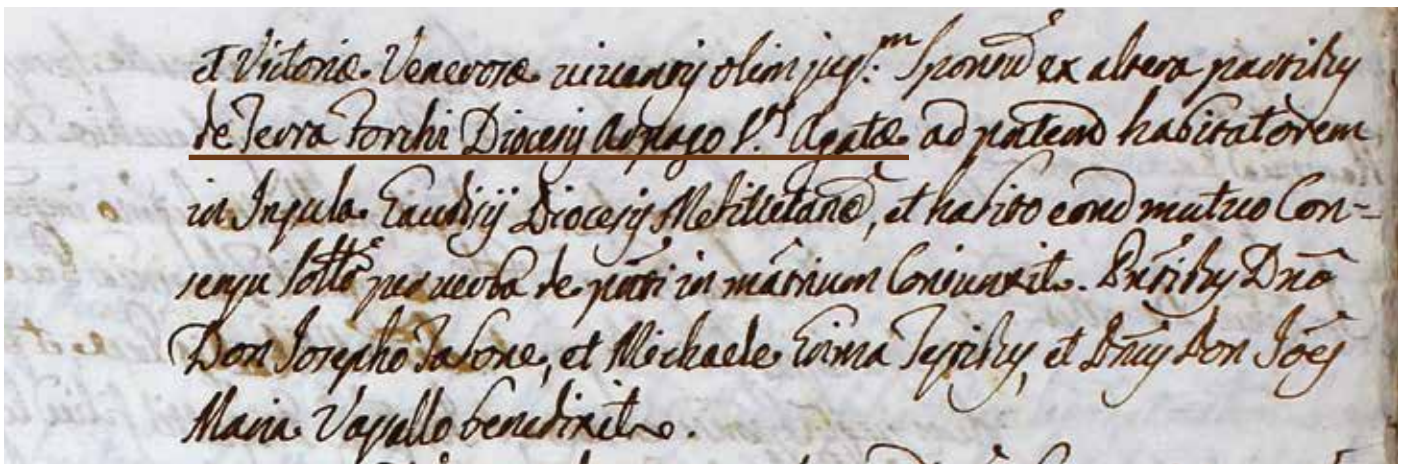 et Victoriæ Venerosæ viventis olim jug:m Sponsū ex altera partibus
de Terra Forchi Diocesis Arpago S.tæ Agatæ ad pntem habitatorem
in Insula Gaudisij Diocesis Melitietanē, et habito eorū mutuo Con-
sensu per verba de pnti in mãrium Coniunxit. Pntibus Dnõ
Don Josepho Tabone, et Michaele Grima Testibus, et Dnus Don Jões
Maria Vassallo benedixit.